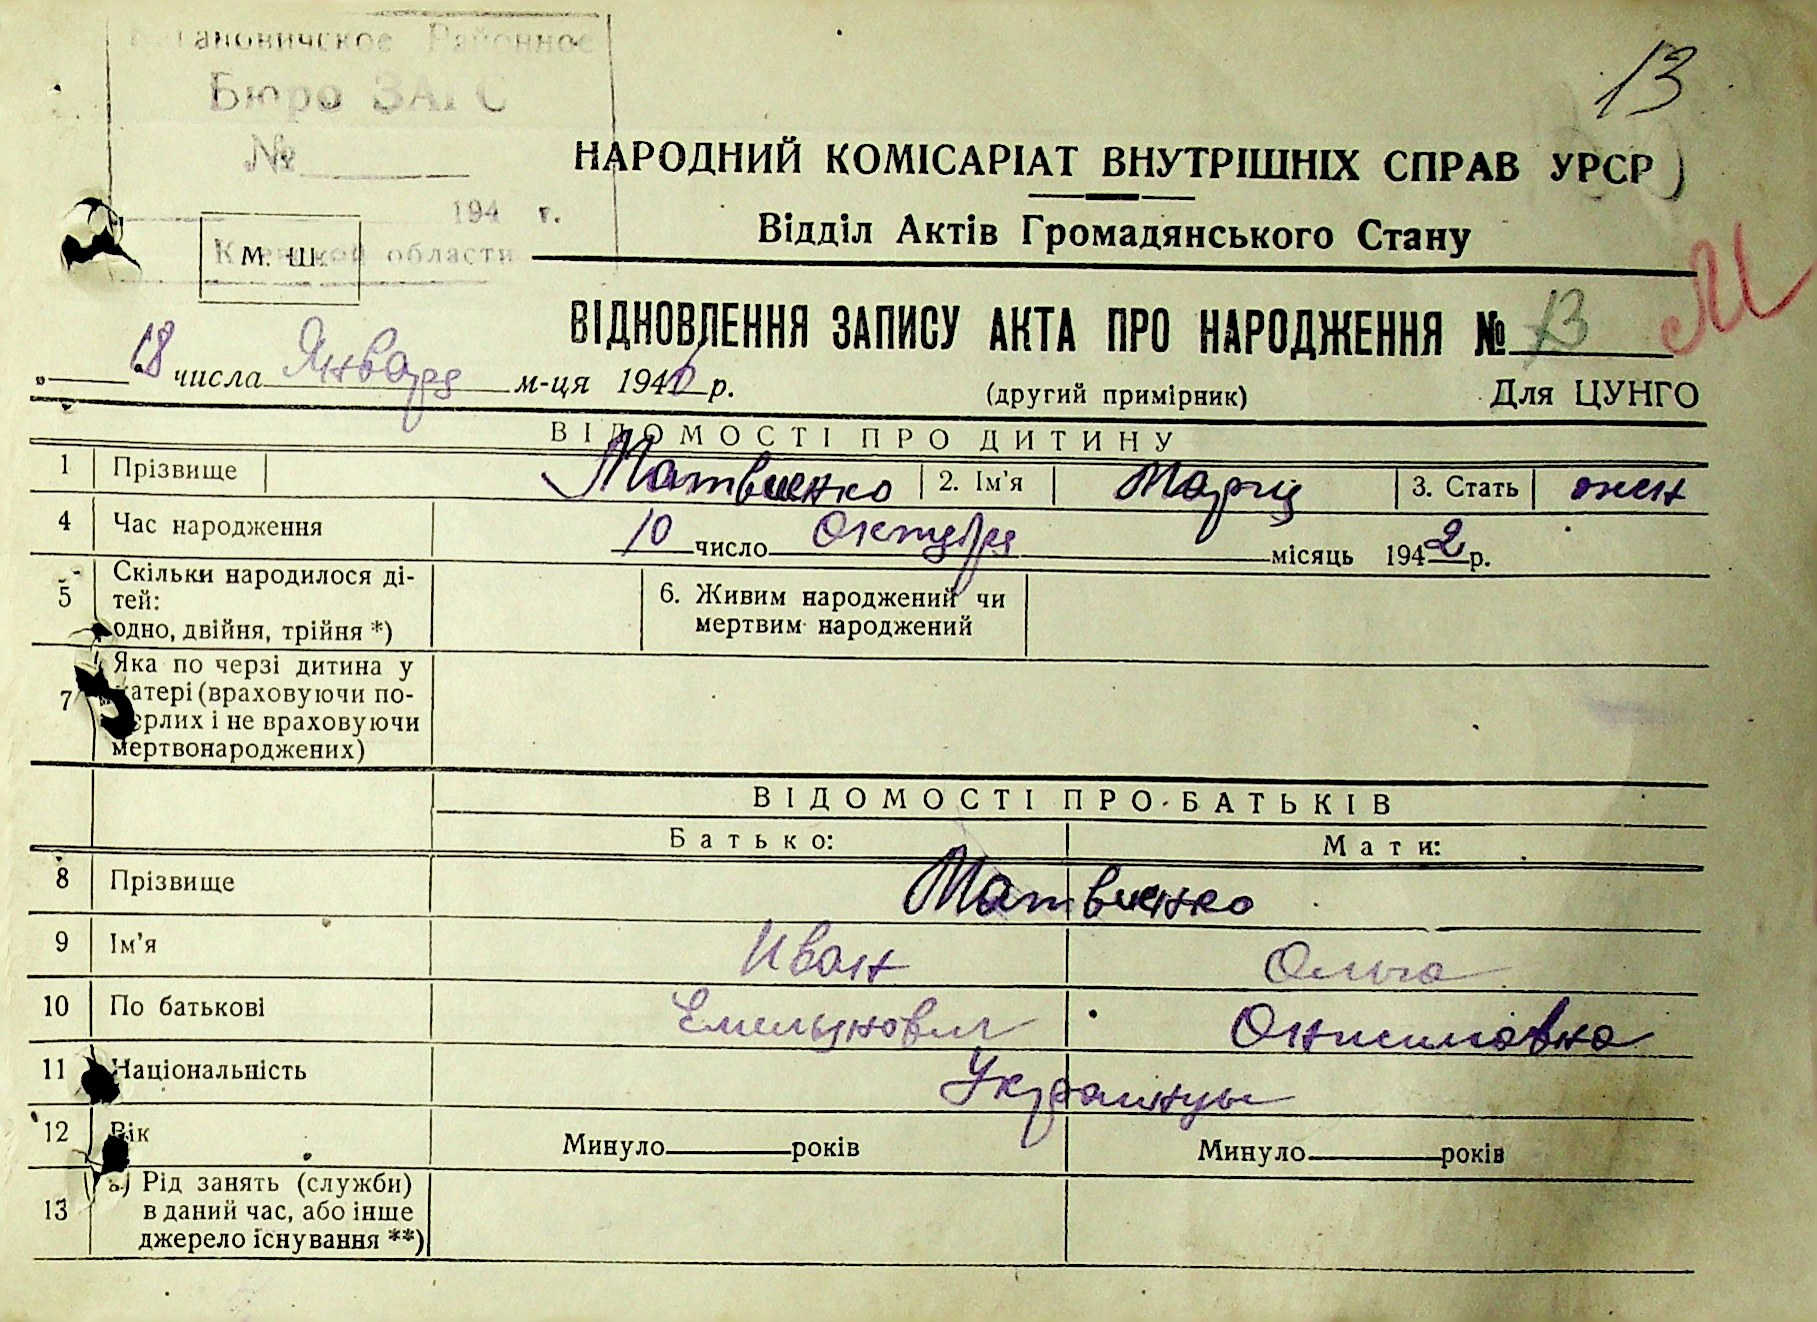 Районное
Бюро ЗАГС
№
194 г.
области
М. Ш.
13
НАРОДНИЙ КОМІСАРІАТ ВНУТРІШНІХ СПРАВ УРСР
Відділ Актів Громадянського Стану
М
ВІДНОВЛЕННЯ ЗАПИСУ АКТА ПРО НАРОДЖЕННЯ № 13
„ 18 " числа Января м-ця 194 р. (другий примірник) Для ЦУНГО
ВІДОМОСТІ ПРО ДИТИНУ
1 Прізвище Матвиенко 2. Ім'я Мария 3. Стать жен
4 Час народження 10 число Октября місяць 1942 р.
5 Скільки народилося ді-
тей:
одно, двійня, трійня *)
6. Живим народжений чи
мертвим народжений
7 Яка по черзі дитина у
матері (враховуючи по-
мерлих і не враховуючи
мертвонароджених)
ВІДОМОСТІ ПРО БАТЬКІВ
Батько: Мати:
8 Прізвище Матвиенко
9 Ім'я Иван Ольга
10 По батькові Емельянович Онисимовна
11 Національність Украинцы
12 Вік Минуло років Минуло років
13 а) Рід занять (служби)
в даний час, або інше
джерело існування **)